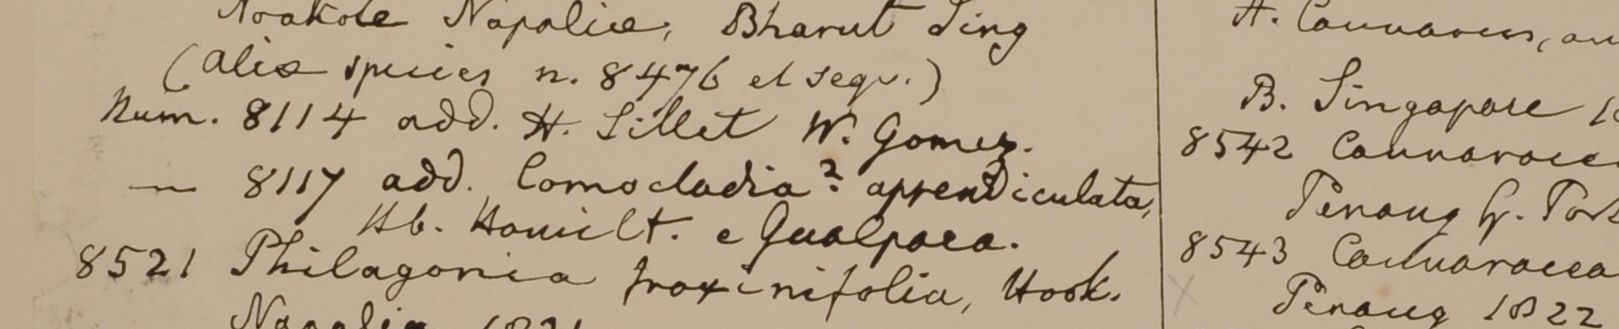 Noakote Napaliae, Bharut Sing
(Aliae species n. 8476 et sequ.)
Num. 8114 add. H. Sillet W. Gomez.
— 8117 add. Comocladia? appendiculata,
Hb. Hamilt. e Gualpara.
8521 Philagonia fraxinifolia, Hook.
Napalia 1821
B. Singapore
8542 Connaracea
Penang G. Port
8543 Connaracea
Penang 1822